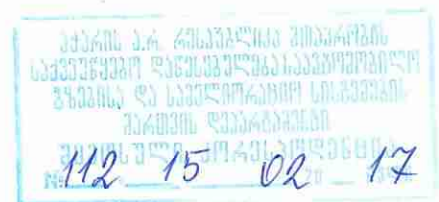 აჭარის ა.რ. რესპუბლიკა მთავრობის
საქვეუწყებო დაწესებულება საავტომობილო
გზებისა და სამელიორაციო სისტემების
მართვის დეპარტამენტი
შემოსული კორესპოდენცია
№ 112 15 02 17